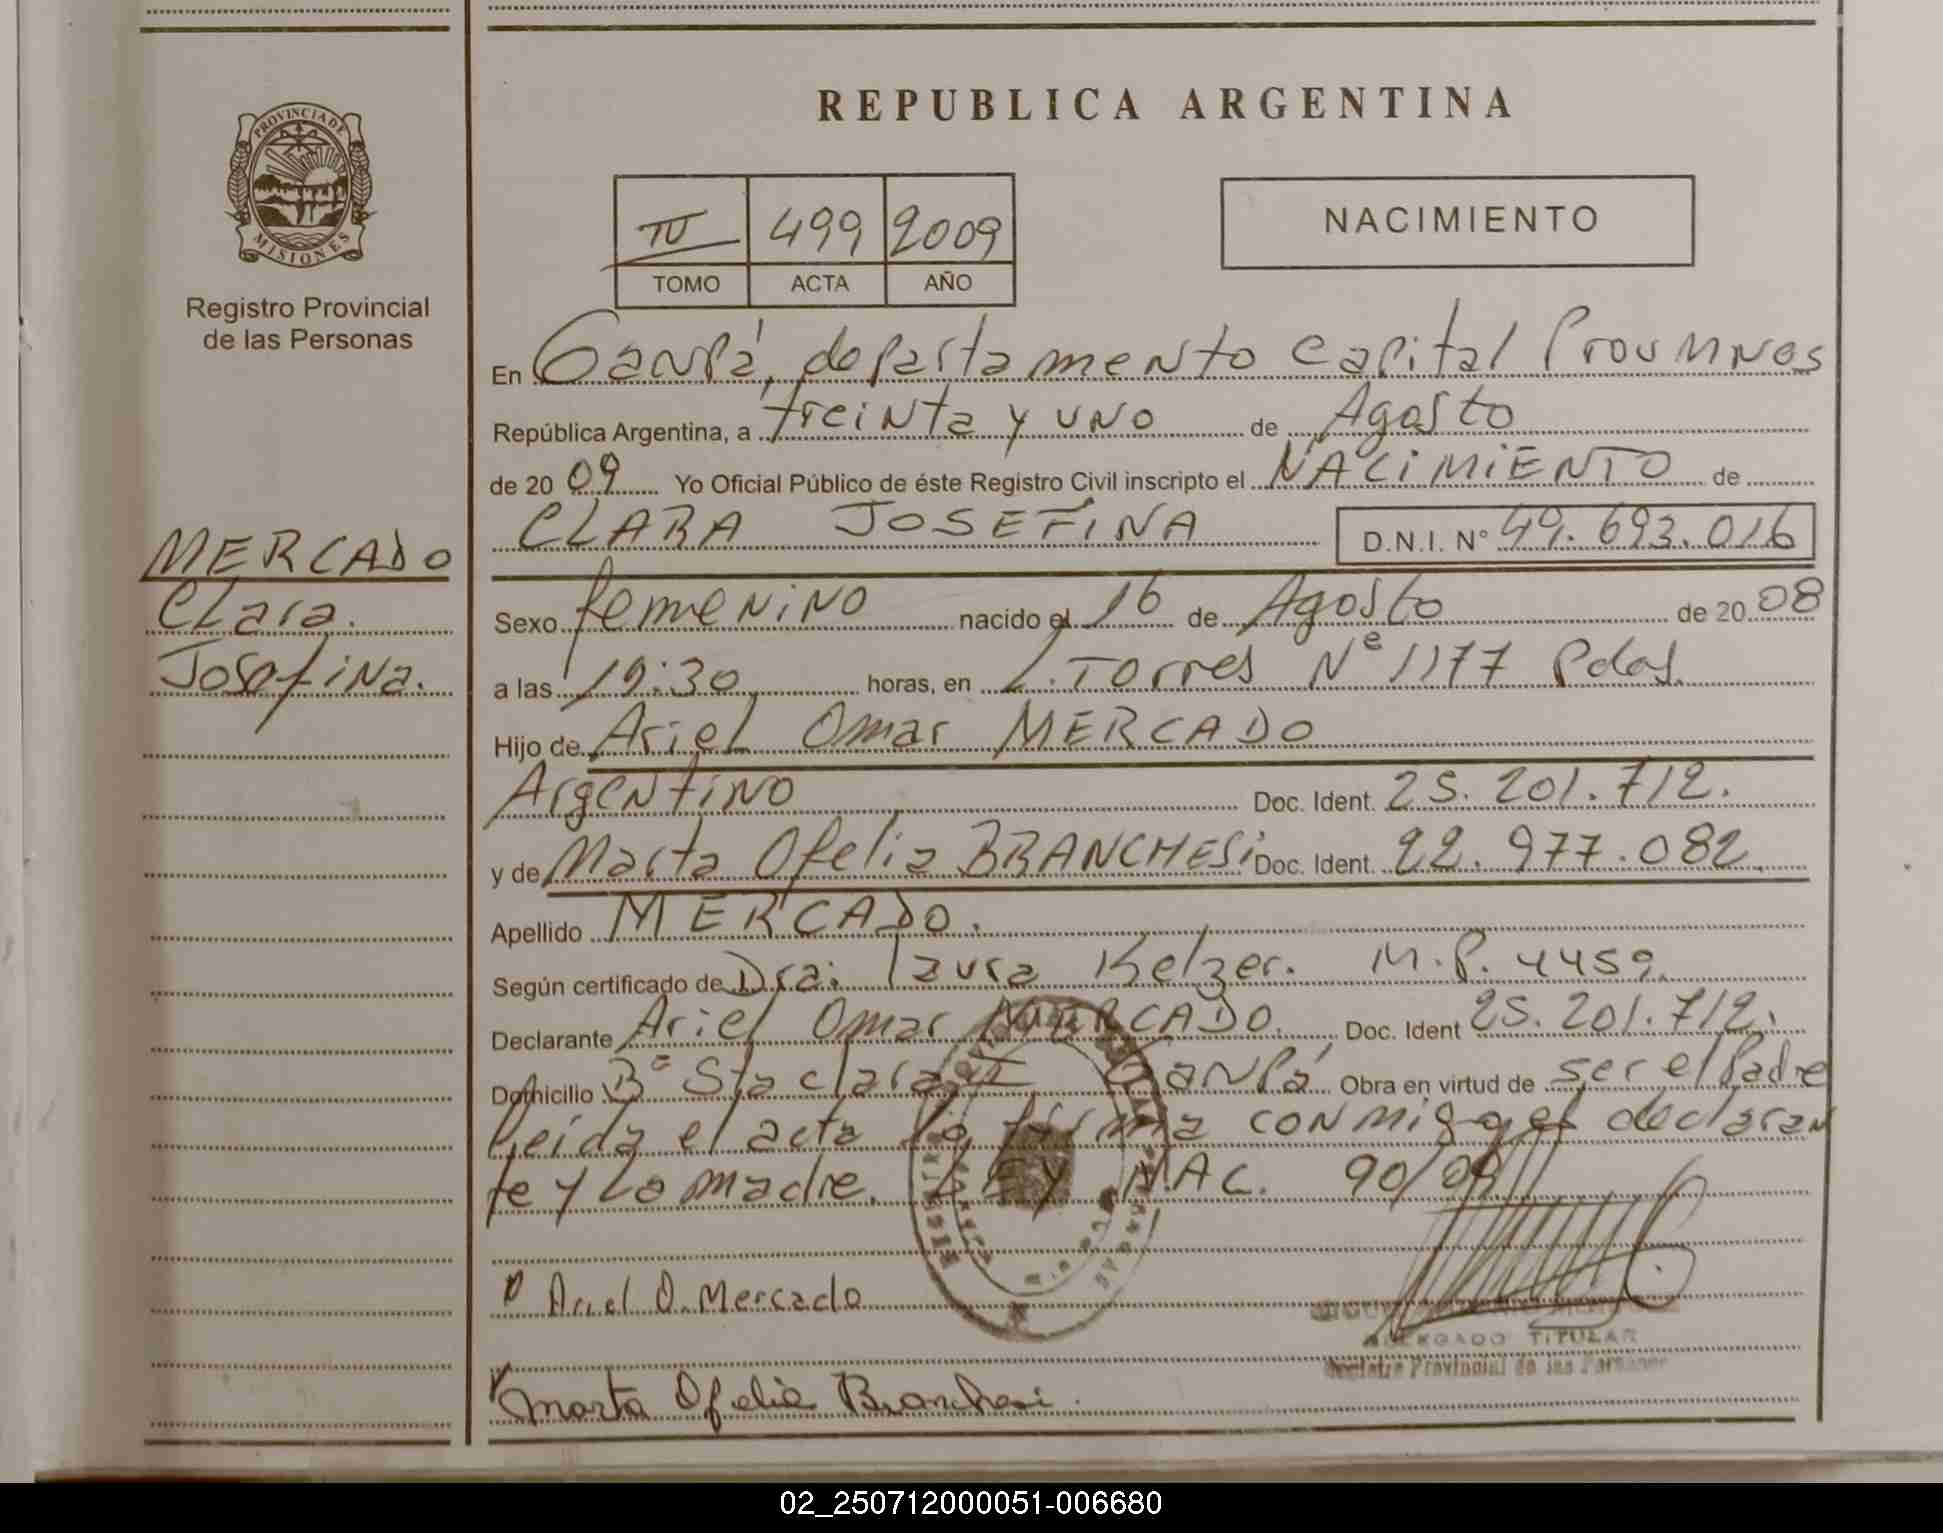 REPUBLICA ARGENTINA
PROVINCIA DE
MISIONES
Registro Provincial
de las Personas
499 2009
TOMO ACTA AÑO
NACIMIENTO
En Garupá, departamento Capital
República Argentina, a treinta y uno de Agosto
de 20 09 Yo Oficial Público de éste Registro Civil inscripto el NACIMIENTO de
CLARA JOSEFINA D.N.I. N° 49.693.016
MERCADO
Clara
Josefina.
Sexo femenino nacido el 16 de Agosto de 20 08
a las 19:30 horas, en L. Torres N° 1177 Pdas.
Hijo de Ariel Omar MERCADO
Argentino Doc. Ident. 25.201.712.
y de Marta Ofelia BRANCHESi Doc. Ident. 22.977.082
Apellido MERCADO.
Según certificado de Dra. Laura Kelzer. M.P. 4459.
Declarante Ariel Omar MERCADO. Doc. Ident 25.201.712.
Domicilio B° Sta clara II Garupá Obra en virtud de ser el Padre
leída el acta la firma conmigo el declaran
te y la madre. LEY NAC. 90/09
Ariel O. Mercado
DELEGADO TITULAR
Registro Provincial de las Personas
Marta Ofelia Branchesi.
02_250712000051-006680